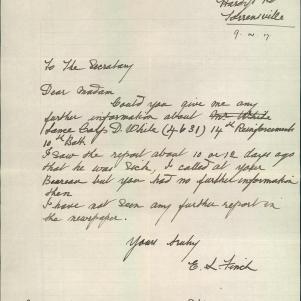 Hardys Rd
Torrensville
9 - 2 - 17
To The Secretary
Dear Madam
Could you give me any
further information about Mr White
Lance Corp D. White (4631) 14th Reinforcements
10th Batt
I saw the report about 10 or 12 days ago
that he was sick, I called at your
Beareau but you had no further information
then
I have not seen any further report in
the newspaper.
Yours truly
E. L. Finch